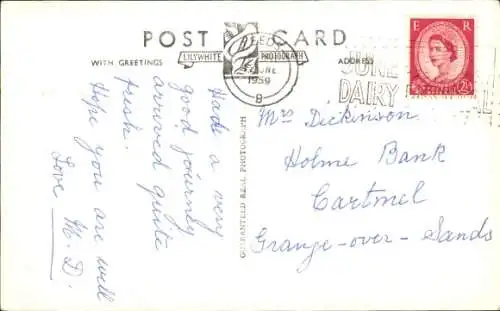 POST CARD
LILYWHITE PHOTOGRAPH
WITH GREETINGS
ADDRESS
JUNE
1959
JUNE
DAIRY
E R
2½
Had a very
good journey
arrived quite
fresh.
Hope you are well
Love M. D.
GUARANTEED REAL PHOTOGRAPH
Mrs Dickinson
Holme Bank
Cartmel
Grange-over-Sands